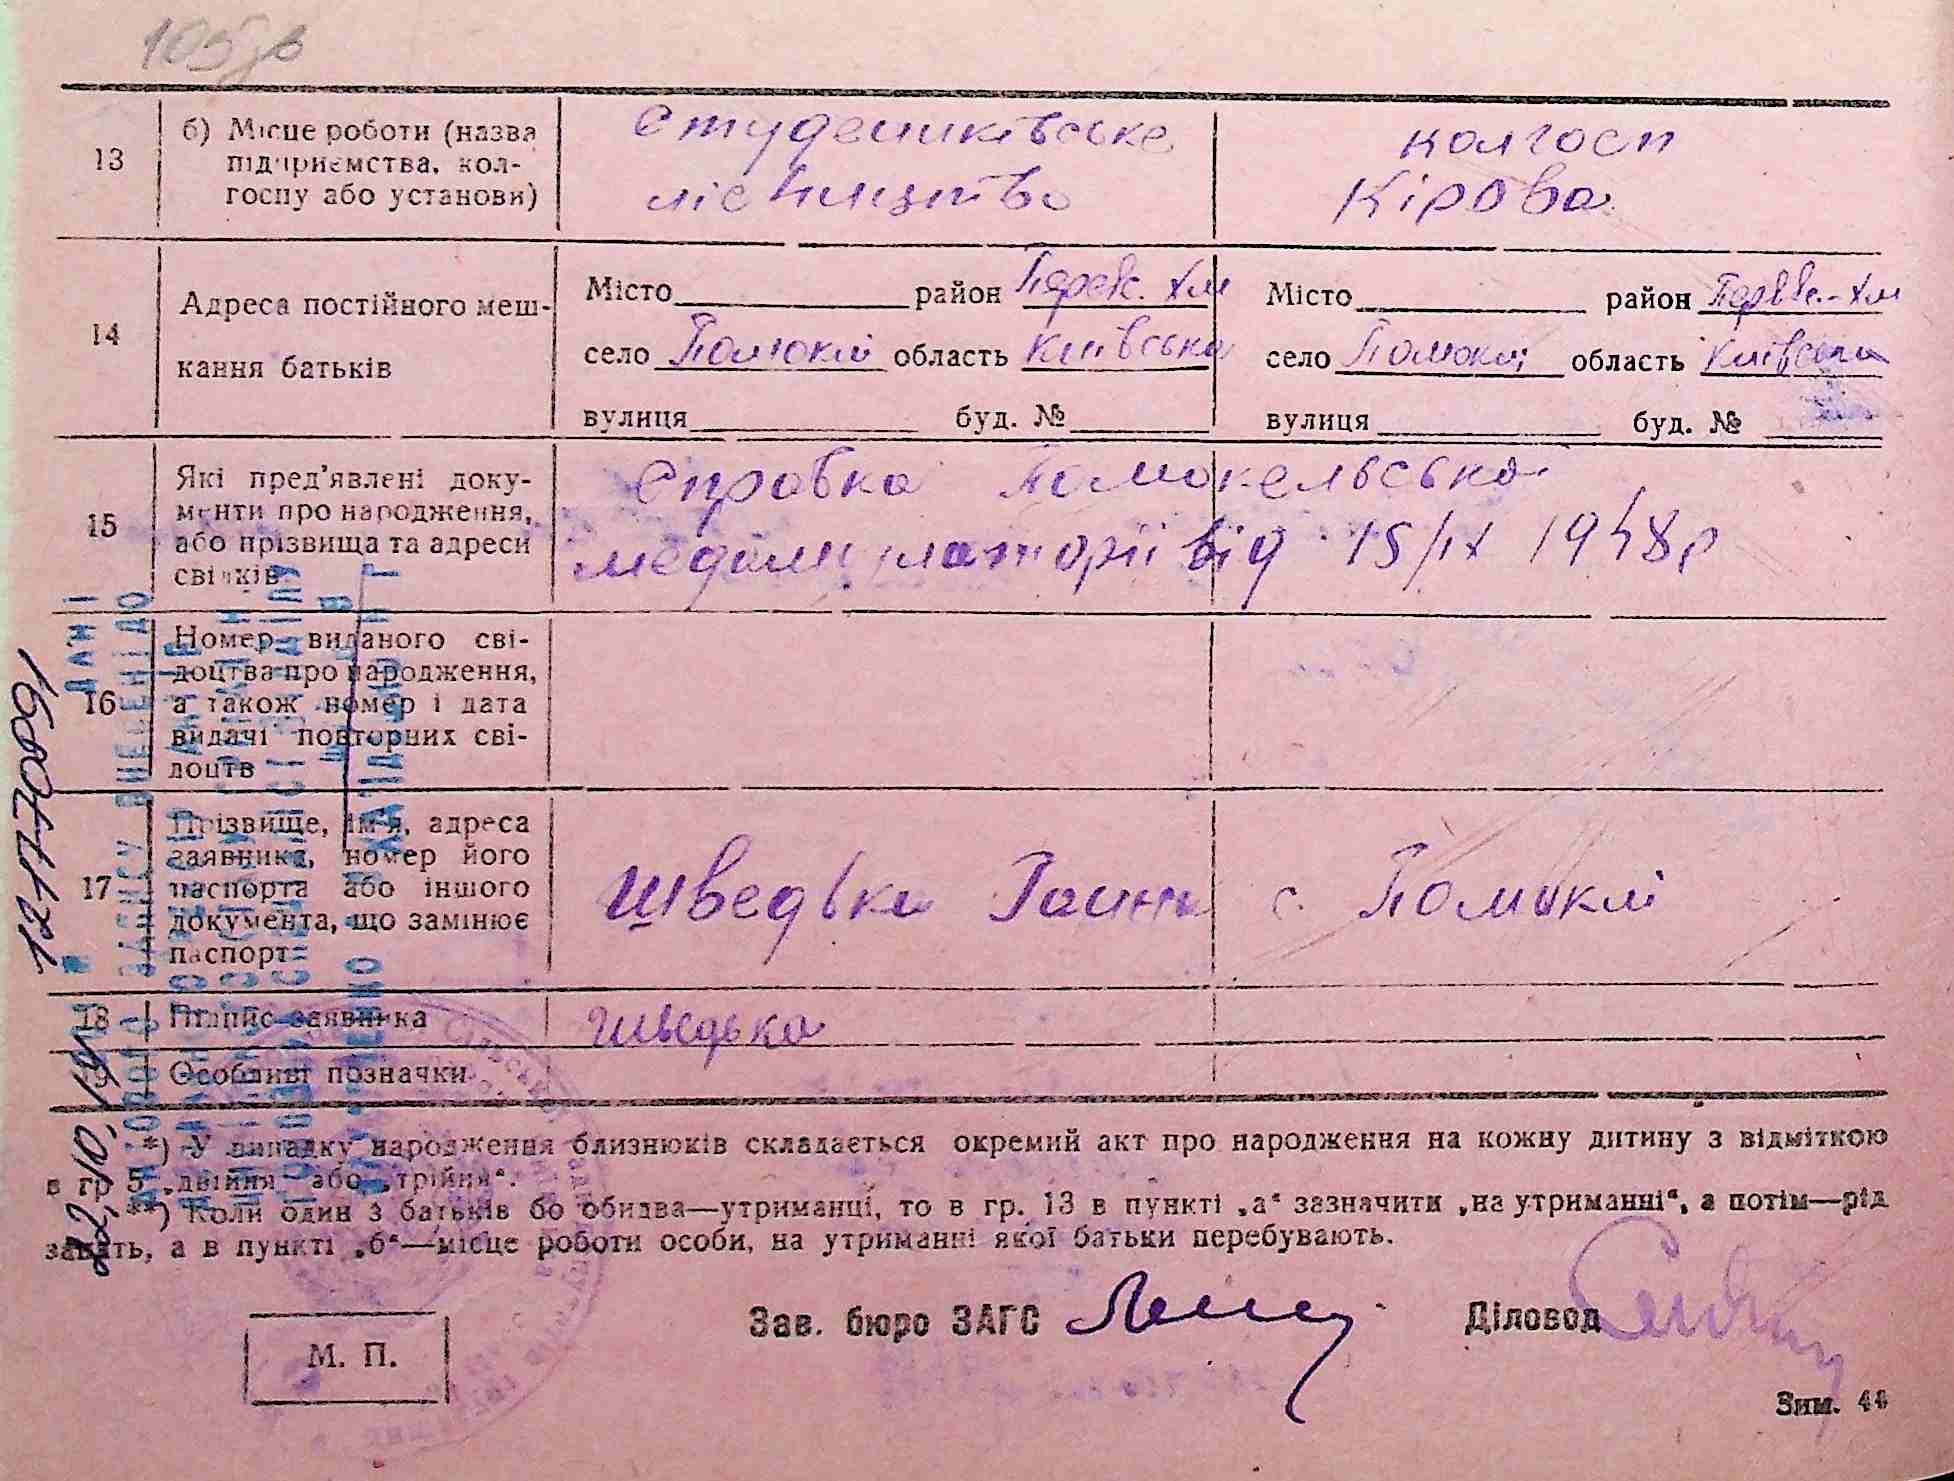 13 б) Місце роботи (назва підприємства, колгоспу або установи) Студениківське лісництво колгосп Кірова
14 Адреса постійного мешкання батьків
Місто район Переяс. Хм Місто район Переяс.-Хм
село Помоклі область Київська село Помоклі область Київська
вулиця буд. № вулиця буд. №
15 Які пред'явлені документи про народження, або прізвища та адреси свідків
Справка Помокельської
від 15/IX 1948р
16 Номер виданого свідоцтва про народження, а також номер і дата видачі повторних свідоцтв
17 Прізвище, ім'я, адреса заявника, номер його паспорта або іншого документа, що замінює паспорт
Шведька Ганна с. Помоклі
18 Підпис заявника Шведька
19 Особливі позначки
*) У випадку народження близнюків складається окремий акт про народження на кожну дитину з відміткою
в гр 5 „двійня" або „трійня".
**) Коли один з батьків бо обидва—утриманці, то в гр. 13 в пункті „а" зазначити „на утриманні", а потім—рід
занять, а в пункті „б"—місце роботи особи, на утриманні якої батьки перебувають.
Зав. бюро ЗАГС Діловод
М. П.
Зим. 44